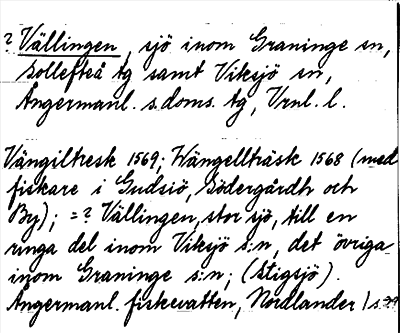 ? Vällingen, sjö inom Graninge sn,
Sollefteå tg samt Viksjö sn,
Ångermanl. s.doms. tg, Vrnl. l.
Vängiltresk 1569; Wängellträsk 1568 (med
fiskare i Gudsiö, Södergårdh och
By); = ? Vällingen, stor sjö, till en
ringa del inom Viksjö s:n, det övriga
inom Graninge s:n; (Stigsjö).
Ångermanl. fiskevatten, Nordlander 1 s.